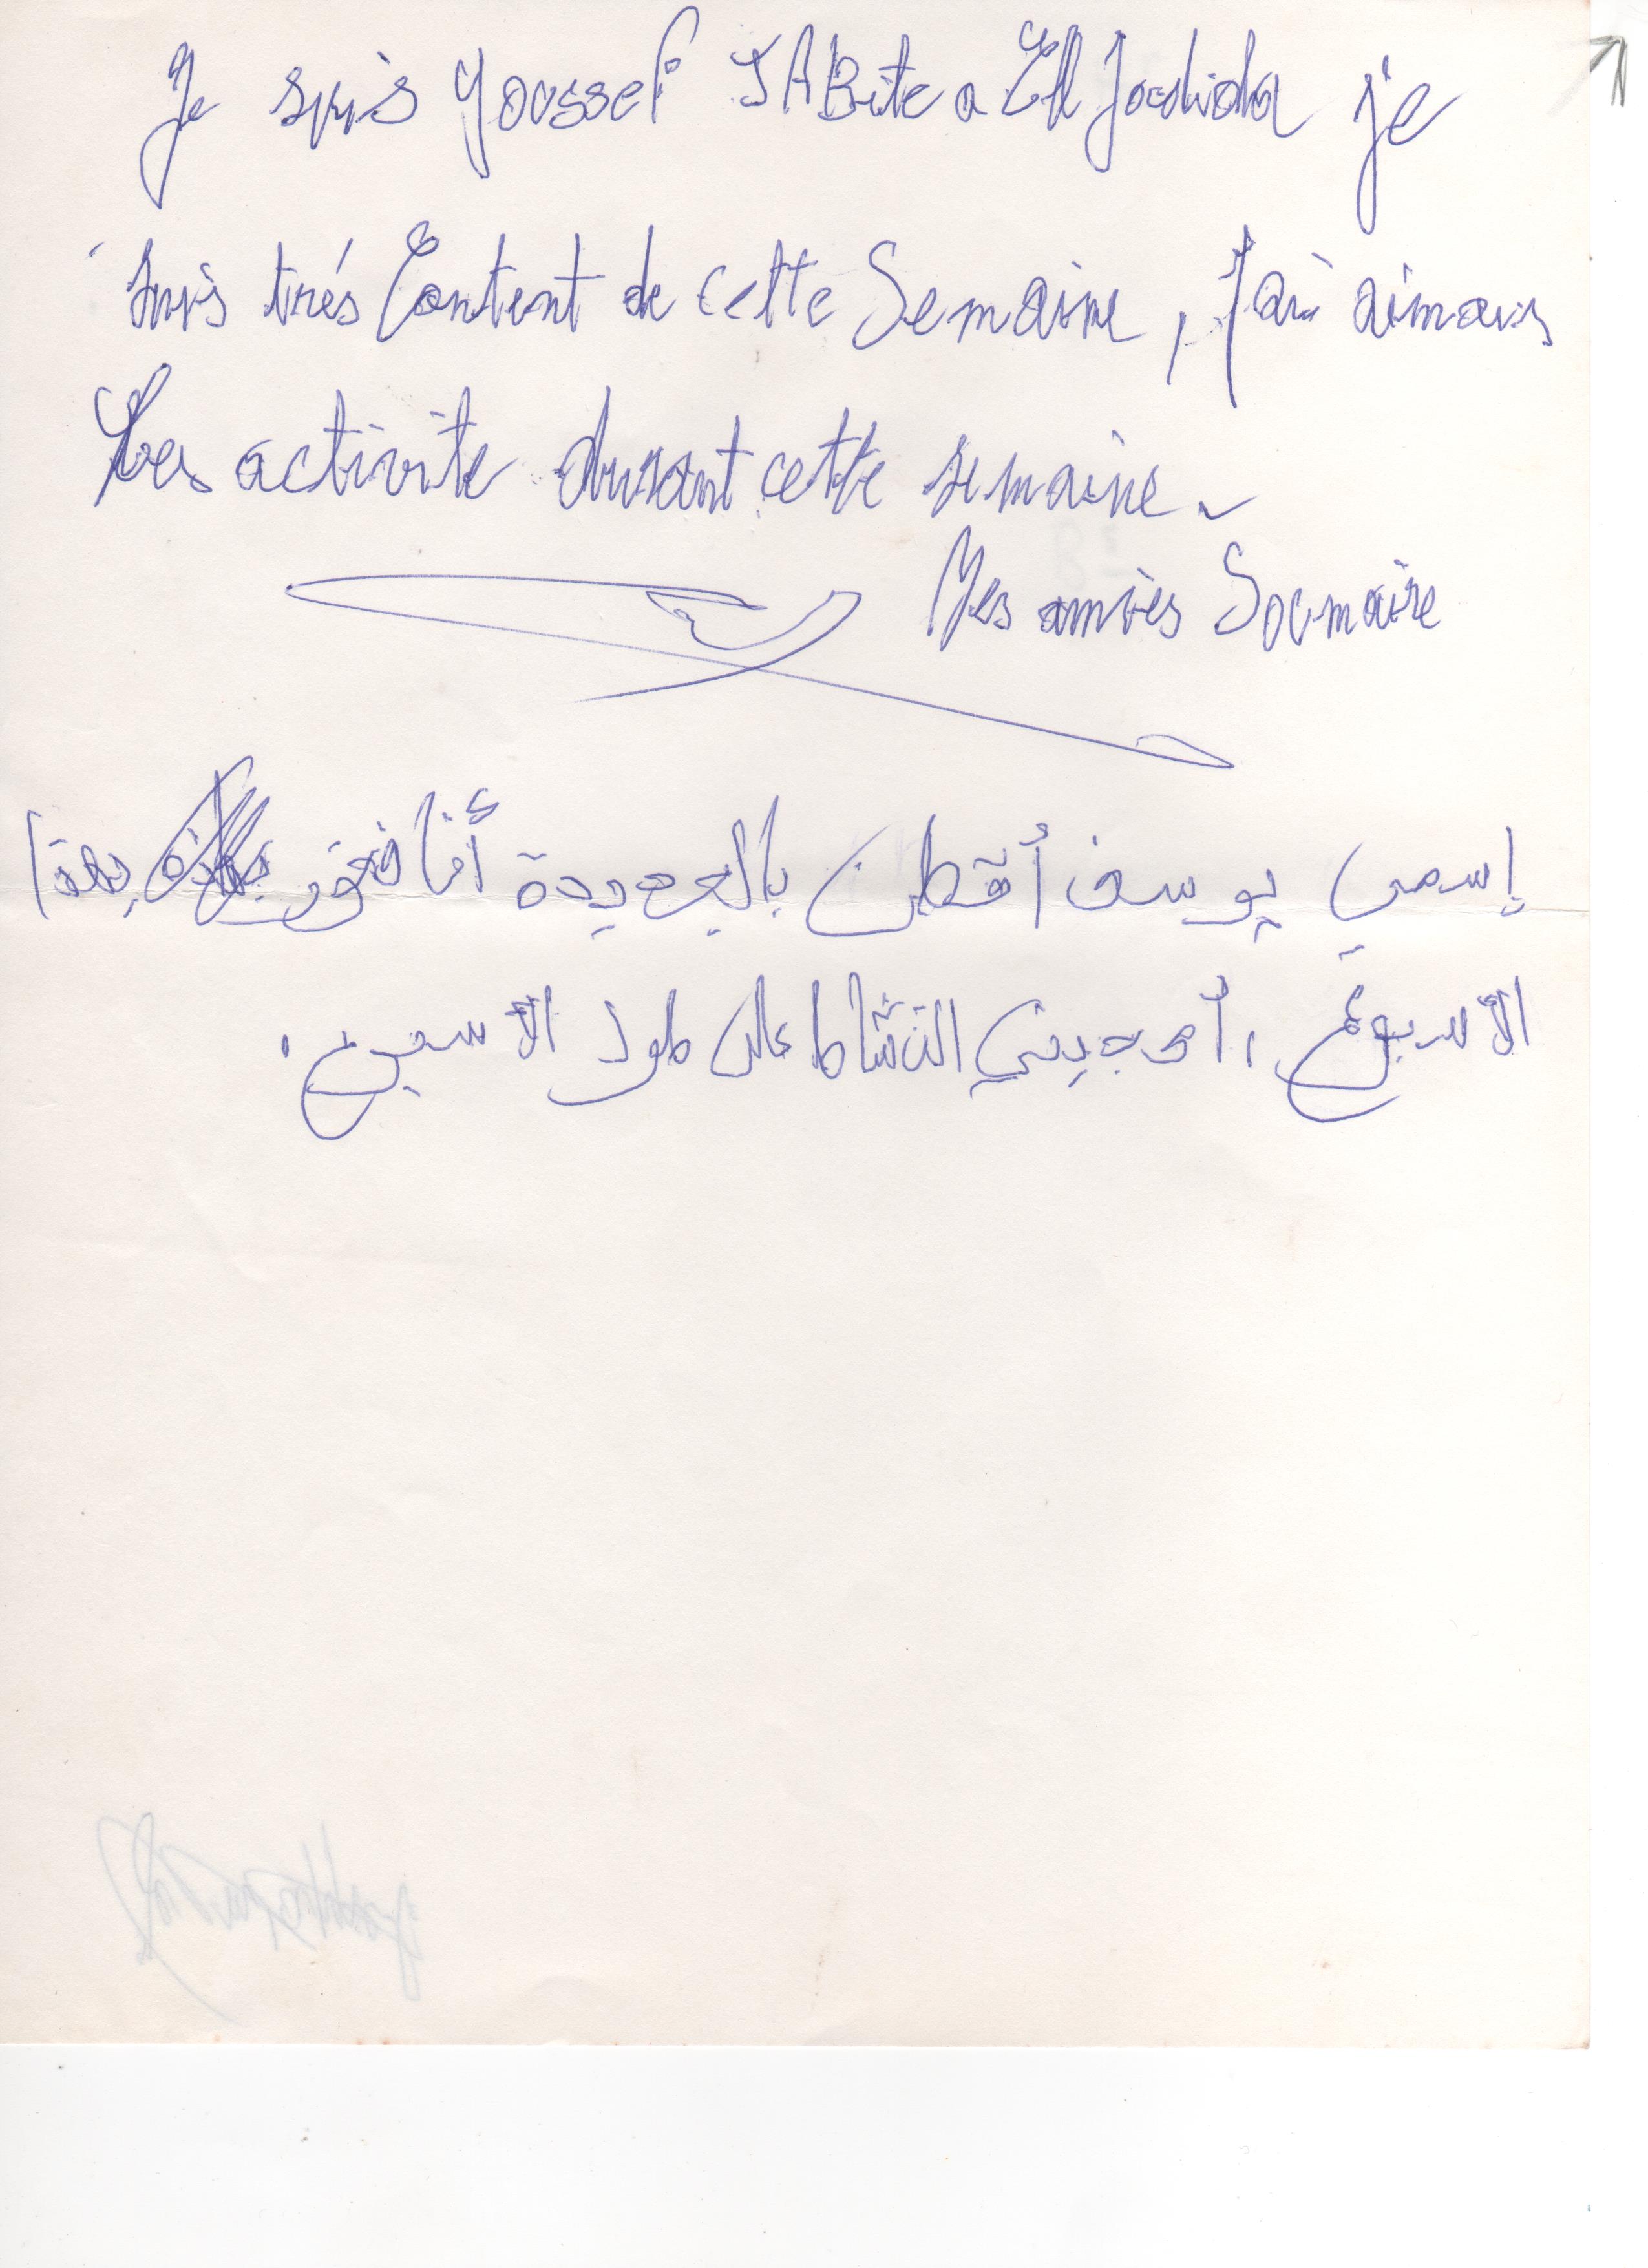 Je suis Youssef JABite a El Jadida je
suis trés Content de cette Semaine, J'ai aimais
Les activite durant cette semaine.
Mes amies Soumaire
إسمي يوسف أقطن بالجديدة أنا فخور بهذا
الاسبوع، أعجبني النشاط على طول الاسبوع.